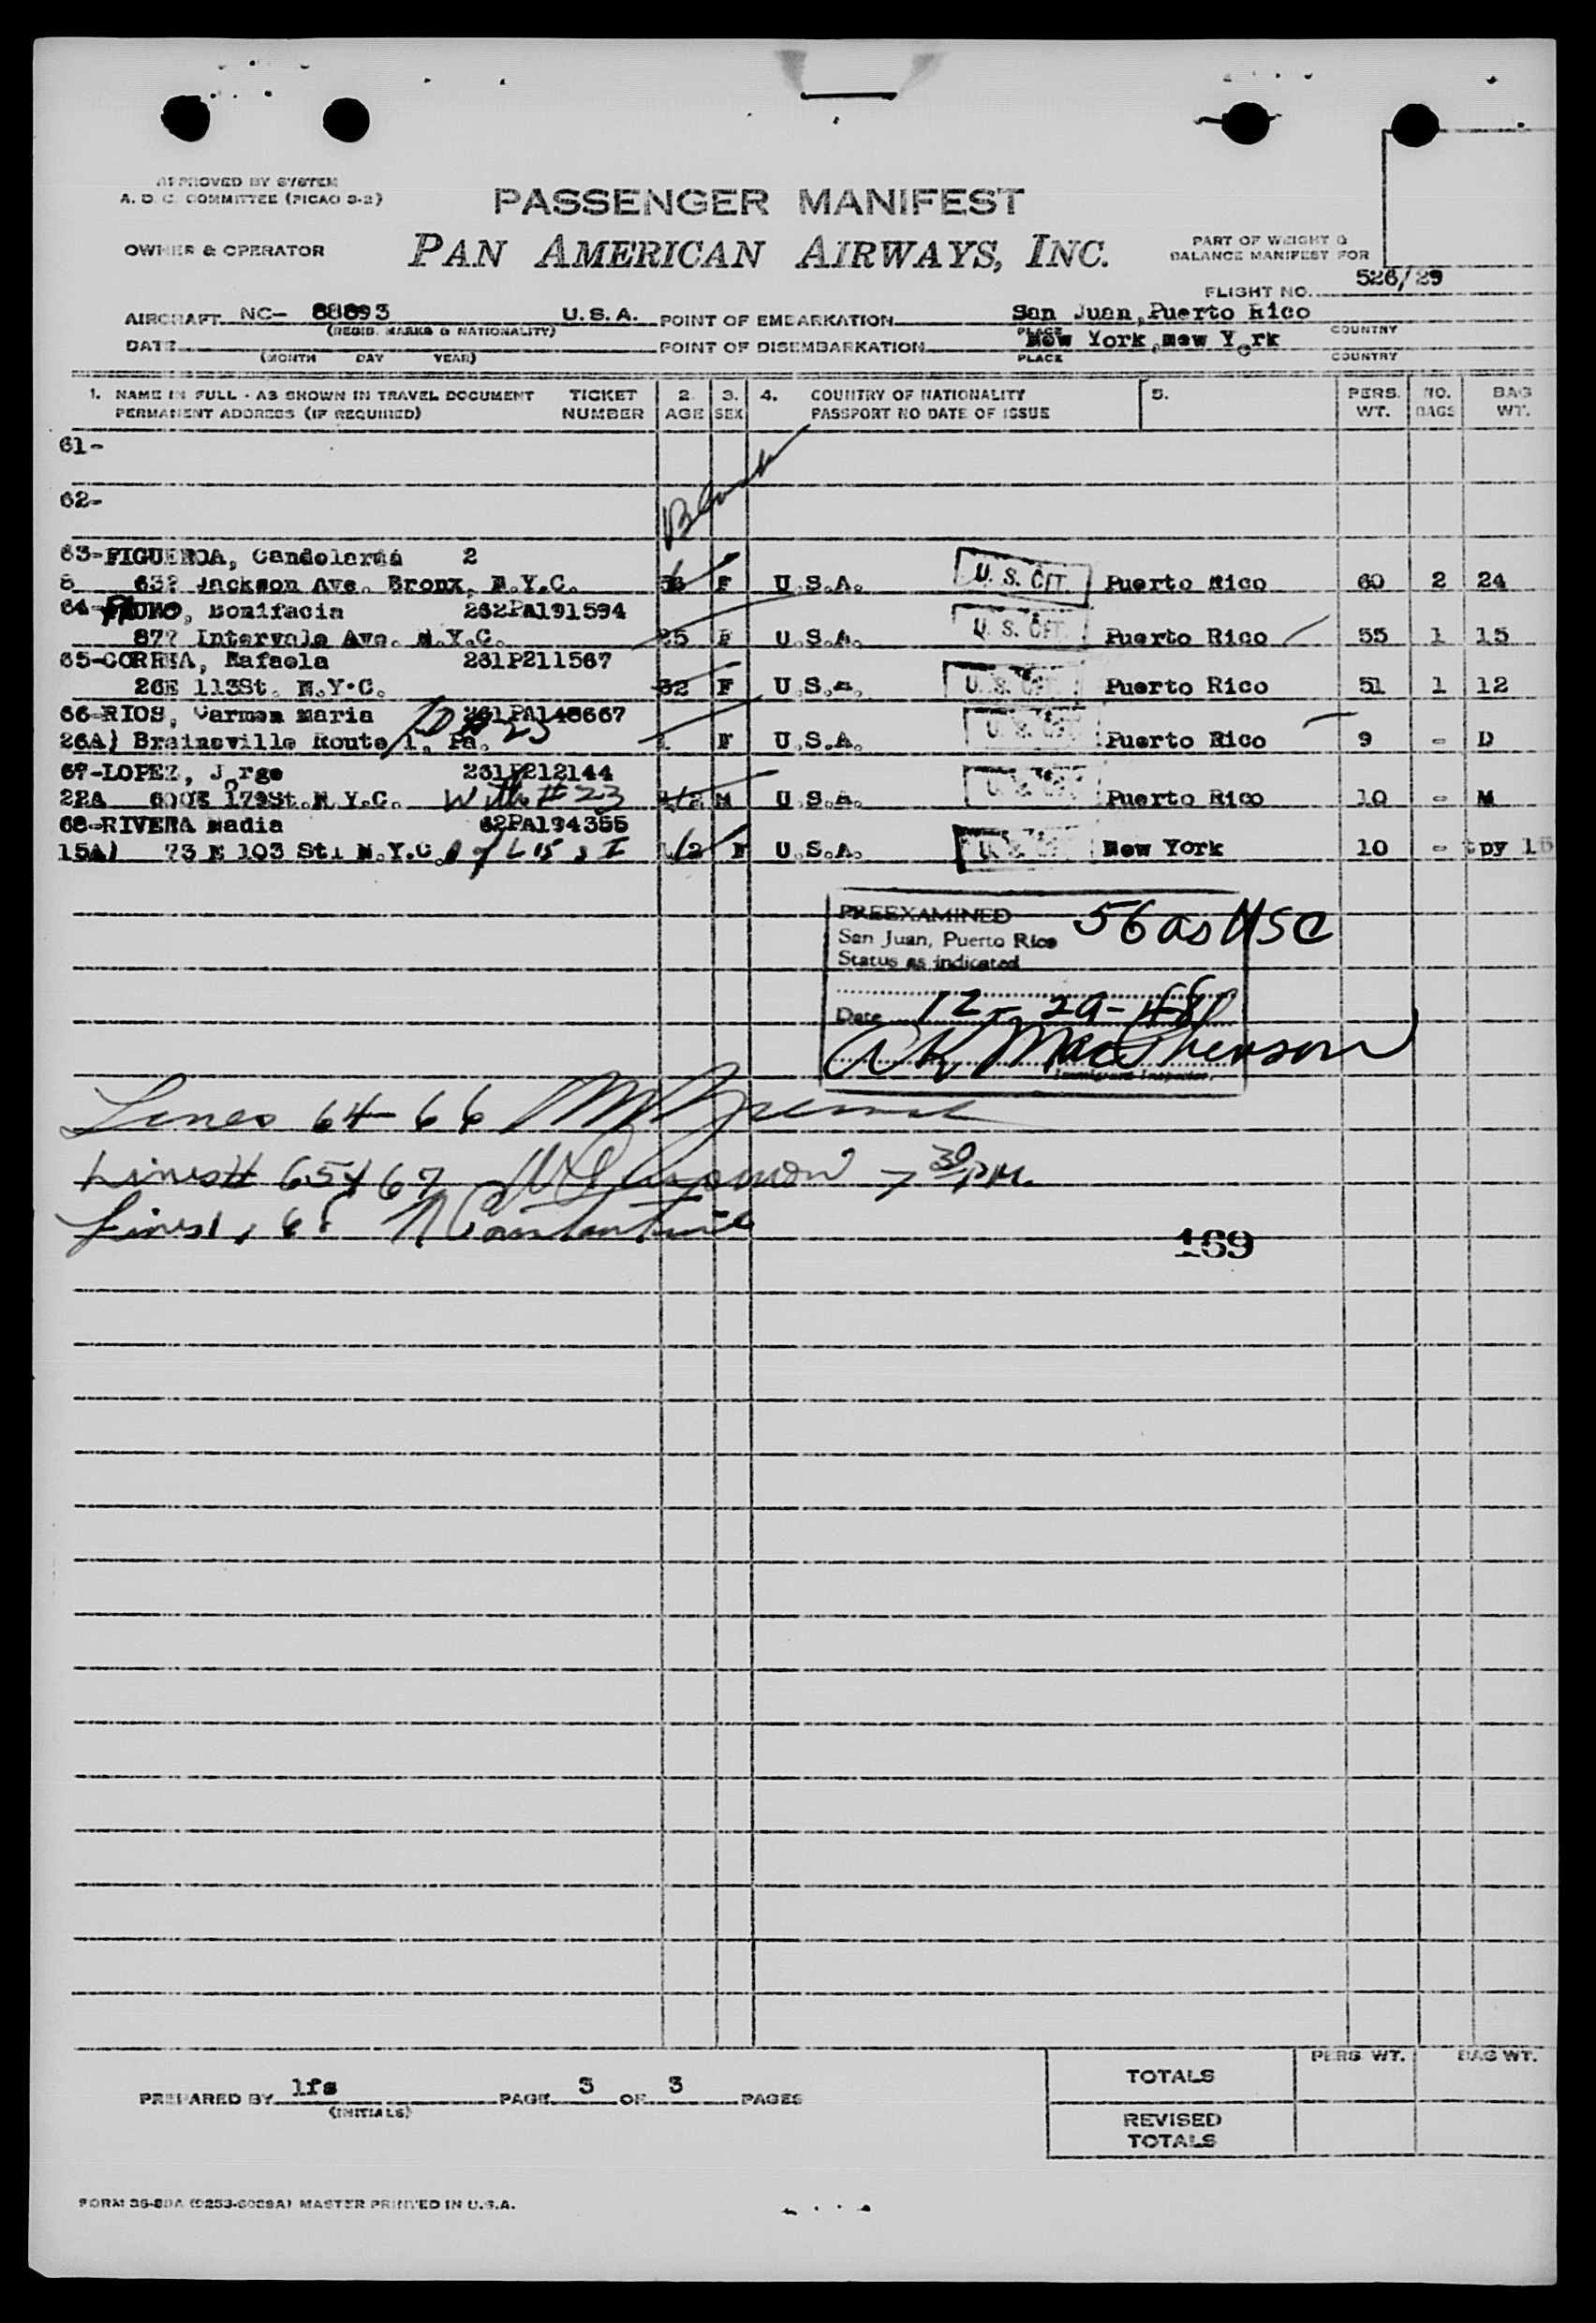 APPROVED BY SYSTEM
A. D. C. COMMITTEE (PICAO 3-2)
PASSENGER MANIFEST
OWNER & OPERATOR
PAN AMERICAN AIRWAYS, INC.
PART OF WEIGHT &
BALANCE MANIFEST FOR
FLIGHT NO. 526/29
AIRCRAFT NC- 88893 U.S.A. POINT OF EMBARKATION San Juan, Puerto Rico
(REGIS. MARKS & NATIONALITY) PLACE COUNTRY
DATE POINT OF DISEMBARKATION New York, New York
(MONTH DAY YEAR) PLACE COUNTRY
1. NAME IN FULL - AS SHOWN IN TRAVEL DOCUMENT TICKET 2. 3. 4. COUNTRY OF NATIONALITY 5. PERS. NO. BAG
PERMANENT ADDRESS (IF REQUIRED) NUMBER AGE SEX PASSPORT NO DATE OF ISSUE WT. BAGS WT.
61-
62-
Blank
63-FIGUEROA, Candelaria 2
8 632 Jackson Ave. Bronx, N.Y.C. F U.S.A. U. S. CIT. Puerto Rico 60 2 24
64- Bonifacia 262PA191594
877 Intervale Ave. N.Y.C. 25 F U.S.A. U. S. CIT. Puerto Rico 55 1 15
65-CORREA, Rafaela 261P211567
26E 113St. N.Y.C. 32 F U.S.A. U. S. CIT. Puerto Rico 51 1 12
66-RIOS, Carmen Maria 261PA148667
26A) Brainsville Route 1, Pa. F U.S.A. U. S. CIT. Puerto Rico 9 - D
67-LOPEZ, Jorge 261P212144
22A 179St. N.Y.C. With #23 M U.S.A. U. S. CIT. Puerto Rico 10 - M
68-RIVERA Nadia 62PA194355
15A) 73 E 103 St. N.Y.C. 1/2 F U.S.A. U. S. CIT. New York 10 - 15
PREEXAMINED 56 as USC
San Juan, Puerto Rico
Status as indicated
Date 12-29-48
A K MacPherson
Immigrant Inspector.
Lines 64-66
Lines# 65 & 67 7 30 PM.
Lines 1, 68 N Constantine
169
PERS WT. BAG WT.
TOTALS
PREPARED BY lfs PAGE 3 OF 3 PAGES
(INITIALS)
REVISED
TOTALS
FORM 36-80A (9253-6009A) MASTER PRINTED IN U.S.A.